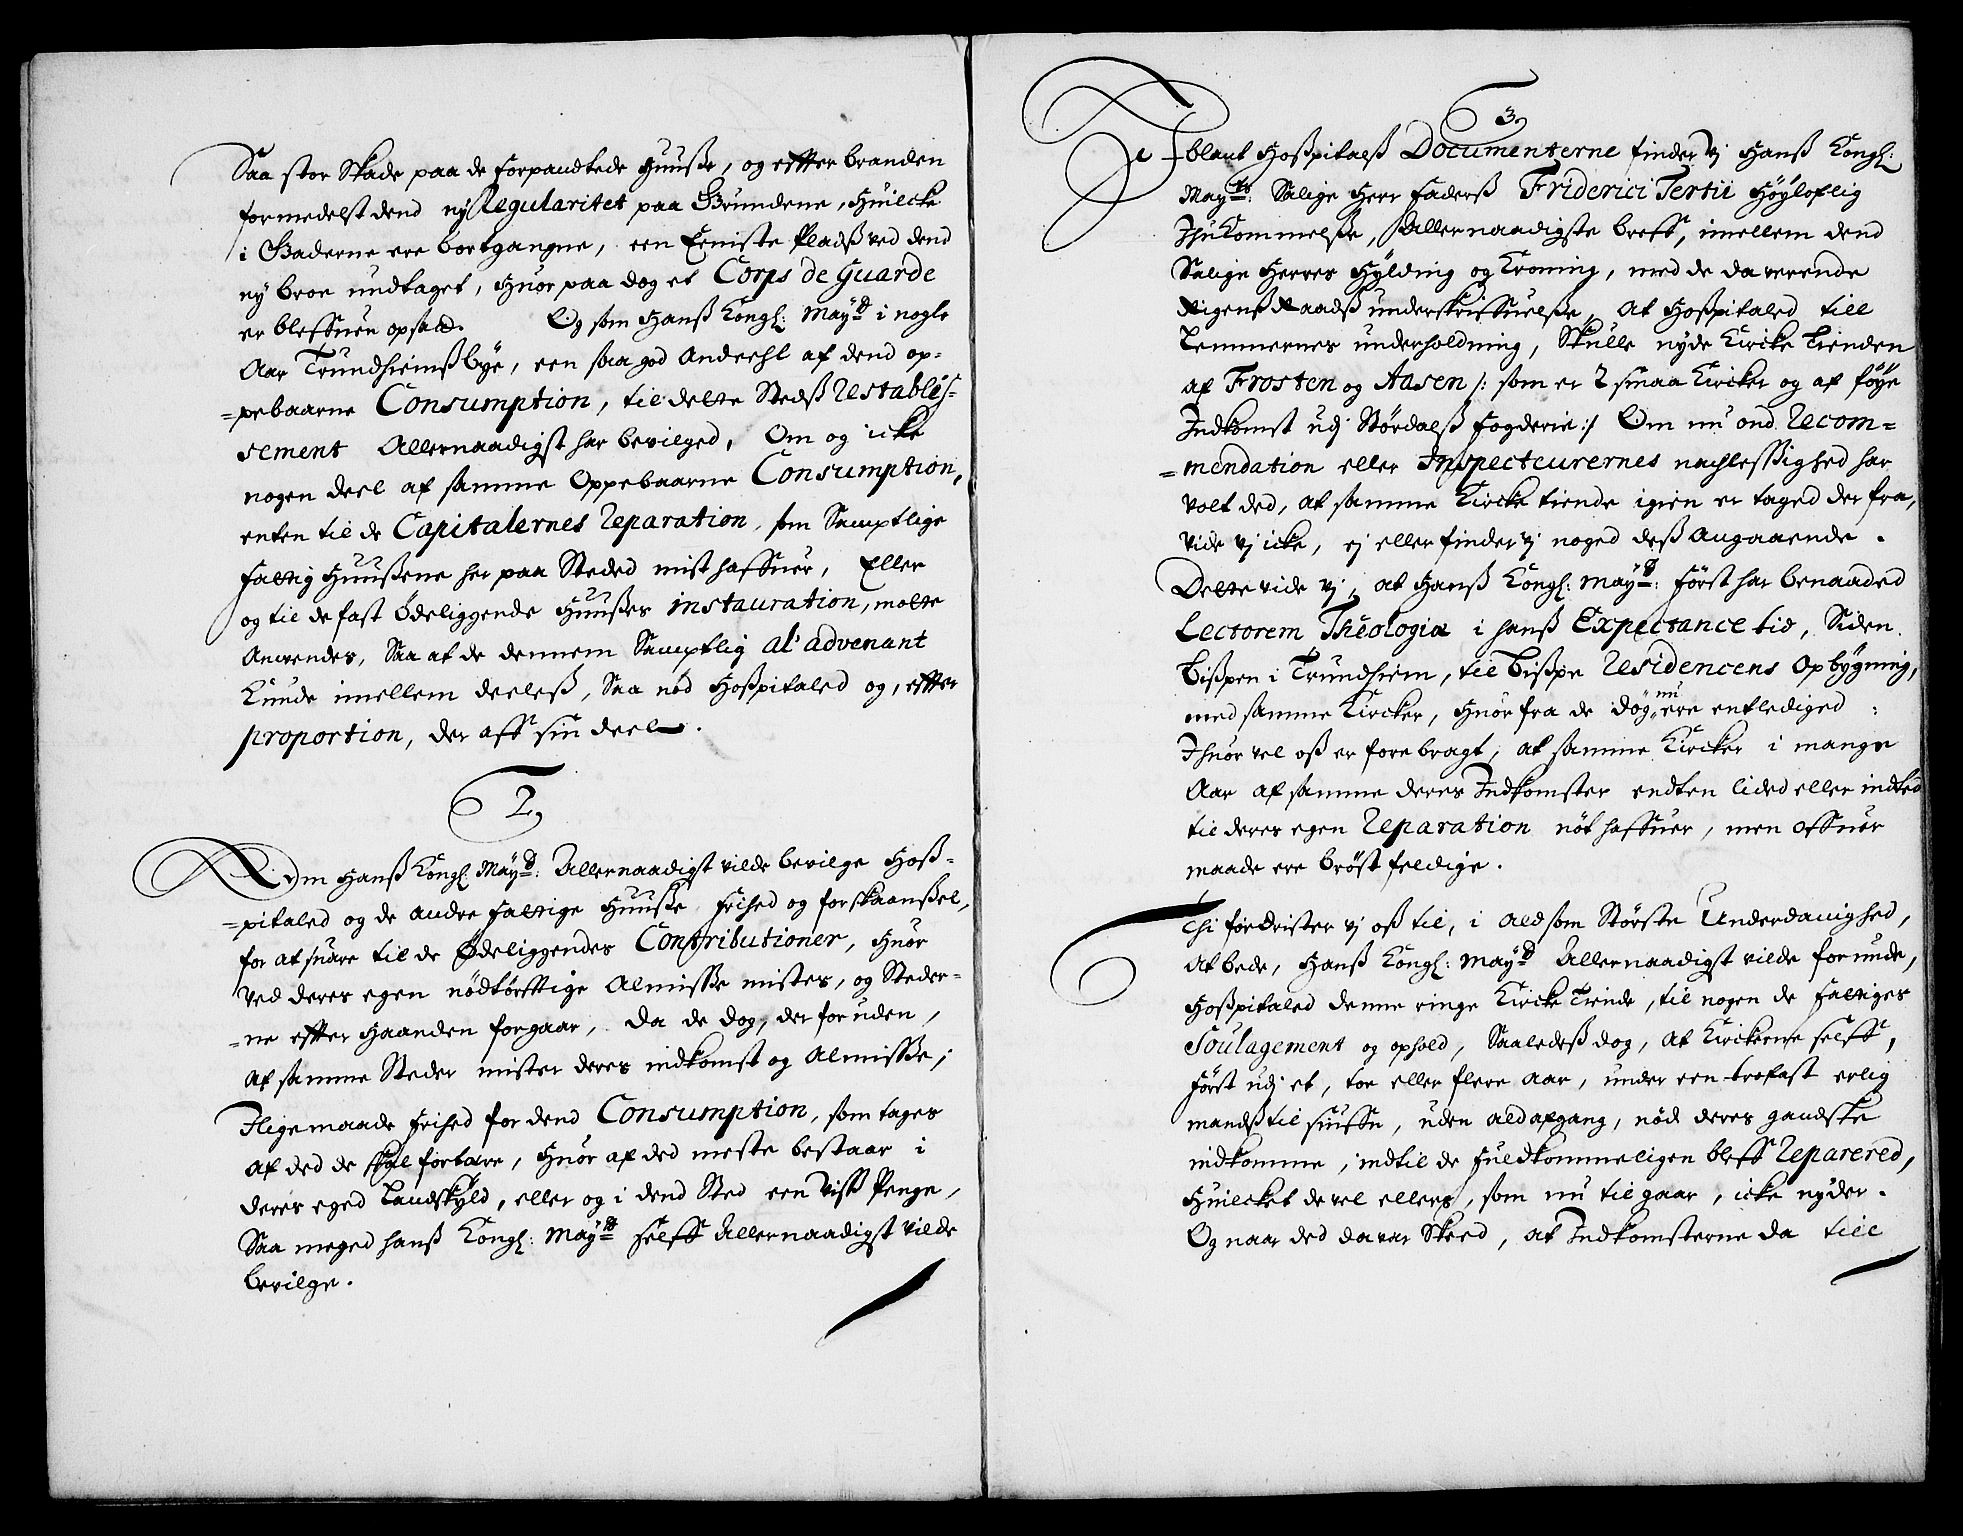 Saa stor Skade paa de forpandtede Huuße, og effter branden
formedelst dend ny Regularitet paa Grundene, Huilcke
i Gaderne ere bortgangne, een Ermiste Pladß ved dend
ny broe undtaget, Huor paa dog et Corps de Guarde
er bleffuen opsadt. Og som Hanß Kongl: Mayᵗ i nogle
Aar Trundhiemß bye, een saa god Andeehl af dend op-
=pebaarne Consumption, til dette Stedß Restablis-
sement Allernaadigst har bevilged, Om og icke
nogen deel af samme Oppebaarne Consumption,
enten til de Capitalernes Reparation, som Samptlige
Fattig Huußene her paa Steded mist haffuer, Eller
og til de fast Ødeliggende Huußes instauration, motte
Anvendes, Saa at de dennem Samptlig al' advenant
Kunde imellem deeleß, Saa nød Hoßpitaled og, effter
proportion, der aff sin deel.
2,
Om Hanß Kongl: Mayᵗ: Allernaadigst vilde bevilge Hoß-
=pitaled og de andre Fattige Huuße frihed og forskaanßel,
for at suare til de Ødeliggendes Contributioner, Huor
ved deres egen nödtörfftige Almisse mistes, og Steder-
=ne effter Haanden forgaar, da de dog, der foruden,
af samme Steder mister deres indkomst og Almisse;
Iligemaade frihed for dend Consumption, som tages
af ded de skal fortære, Huor af ded meste bestaar i
deres eged Landskyld, eller og i dend Sted een viß Penge,
Saa meged hanß Kongl: Mayᵗ selff Allernaadigst vilde
bevilge.
3,
Iblant Hoßpitalß Documenterne finder vj Hanß Kongl:
Mayᵗˢ: Salige Herr Faderß Friderici Tertii Höyloflig
Ihukommelße, Allernaadigste breff, imellem dend
Salige Herres Hylding og Croning, med de da verende
Rigenß Raadß underskriffuelße, At Hoßpitaled till
Lemmernes underholdning, Skulle nyde Kircke Tienden
af Frosten og Aasen /: som er 2 smaa Kircker og af föye
Indkomst udj Stördalß Fogderie :/ Om nu ond Recom=
=mendation eller Inspecteurernes nachlessighed har
volt ded, at samme Kircke tiende igien er taged der fra,
vide vj icke, ej eller finder vj noged deß Angaaende.
Dette vide vj, at Hanß Kongl: Mayᵗ: först har benaaded
Lectorem Theologiæ i hanß Expectance tid, Siden
Bißpen i Trundhiem, til Bißpe Residencens Opbygning,
med samme Kircker, Huor fra de dog nu ere entlediged:
Ihuor vel oß er forebragt, at samme Kircker i mange
Aar af samme deres Indkomster endten lided eller indted
til deres egen Reparation nöt haffuer, men offuer
maade ere bröst feldige.
Thi fordrister vj oß til, i ald som Störste Underdanighed,
At bede, Hanß Kongl: Mayᵗ Allernaadigst vilde forunde,
Hoßpitaled denne ringe Kircke Tiende, til nogen de Fattiges
Soulagement og ophold, Saaledeß dog, At Kirckerne selff,
först udj et, toe eller flere Aar, under een trofast erlig
mandß til siuffn, uden ald afgang, nöd deres gandske
indkomme, indtil de Fuldkommeligen bleff Reparered,
Huilcket de vel ellers, som nu til gaar, icke nyder.
Og naar ded da var Skeed, at Indkomsterne da till